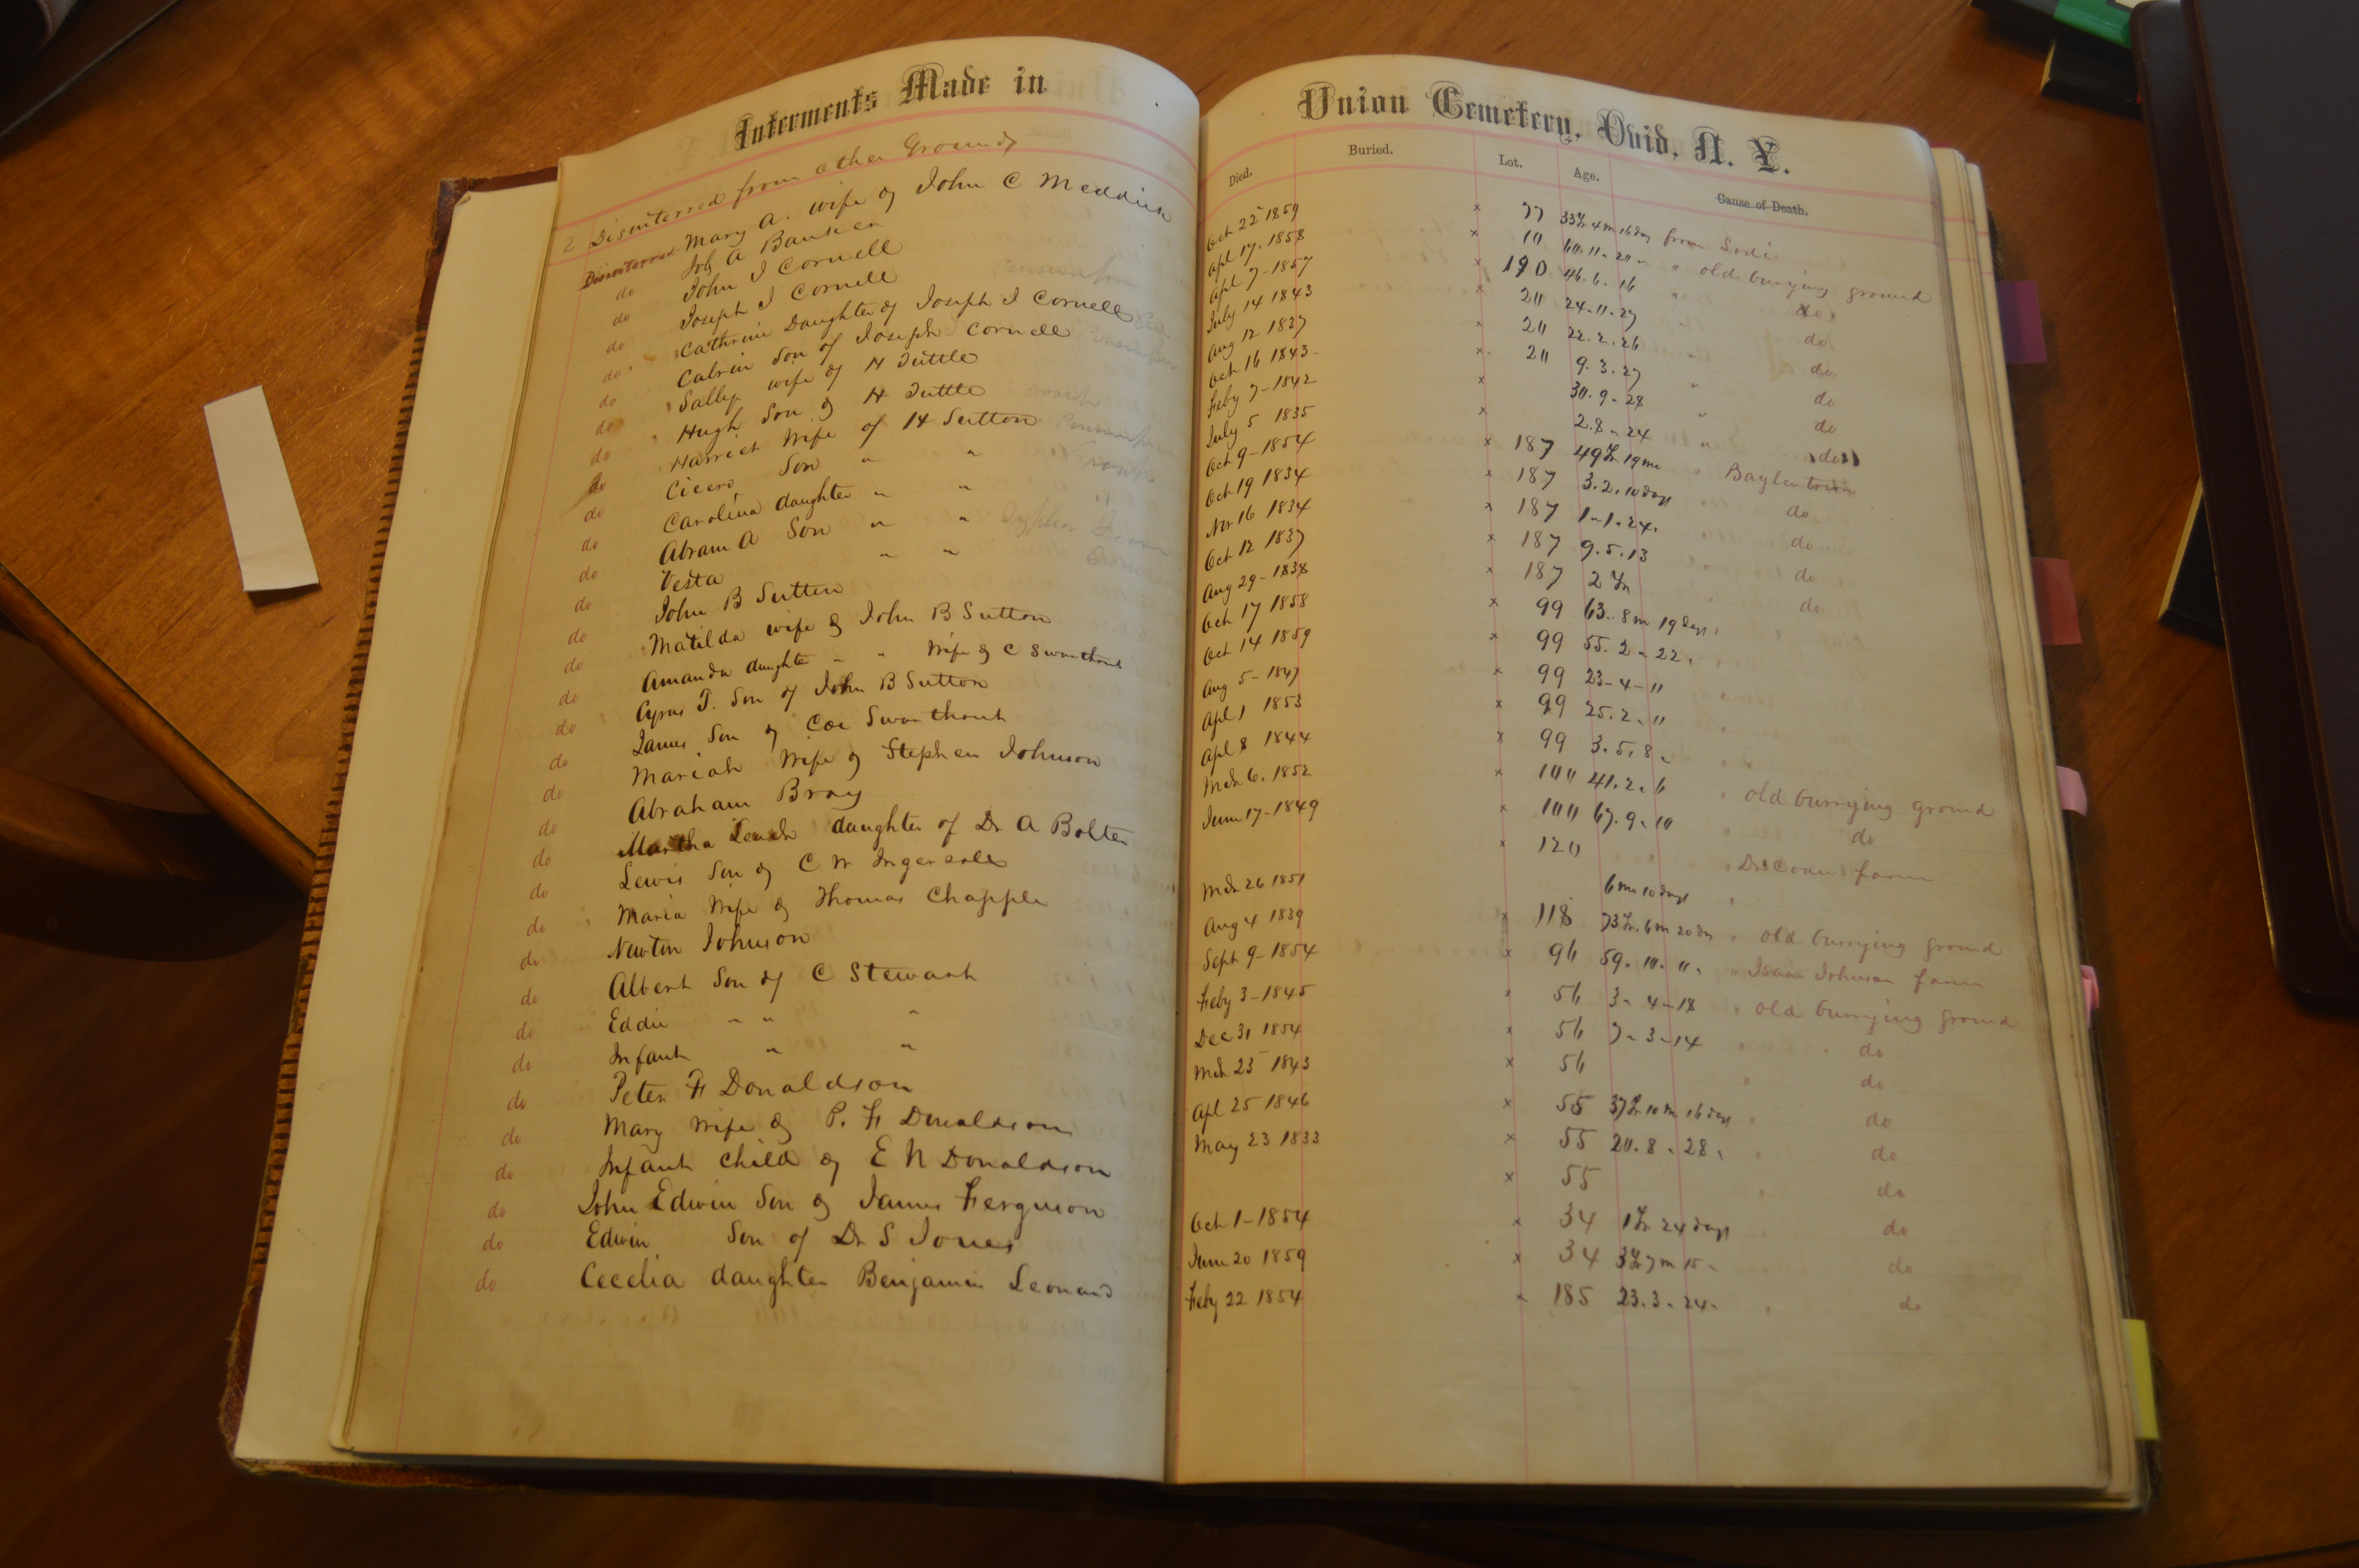 Interments Made in Union Cemetery, Ovid, N. Y.
Died. Buried. Lot. Age. Cause of Death.
2 Disinterred from other Grounds
Disinterred Mary A. wife of John C Meddick Oct 22 1859 x 77 33 Yr 4 m 16 day from
do Job A Bancker Apl 17. 1858 x 10 60. 11. 20 " old burying ground
do John I Cornell Apl 7 - 1857 x 190 46. 6. 16 " do
do Joseph I Cornell July 14 1843 x 20 24. 11. 27 " do
do Cathrine Daughter of Joseph I Cornell Aug 12 1837 x 20 22. 2. 26 do
do Calvin Son of Joseph Cornell Oct 16 1843 x 20 9. 3. 27 " do
do Sally wife of H Tuttle Feby 7 - 1842 x 30. 9 - 28 " do
do Hugh Son of H Tuttle July 5 1835 x 2. 8 - 24 " do
do Harriet Wife of H Sutton Oct 9 - 1854 x 187 49 Yr 19 m " Baylentown
do Cicero Son " " Oct 19 1834 x 187 3. 2. 10 days do
do Carolina daughter " " Nov 16 1834 x 187 1 - 1. 24. do
do Abram A Son " " Oct 12 1837 x 187 9. 5. 13 do
do Vesta " " Aug 29 - 1838 x 187 2 Yr do
do John B Sutton Oct 17 1858 x 99 63. 8 m 19 days
do Matilda wife of John B Sutton Oct 14 1859 x 99 55. 2 - 22.
do Amanda daughter " " Wife of C Swarthout Aug 5 - 1847 x 99 23 - 4 - "
do Cyrus T. Son of John B Sutton Apl 1 1853 x 99 25. 2. "
do James Son of Coe Swarthout Apl 8 1844 x 99 3. 5. 8.
do Mariah Wife of Stephen Johnson Mch 6. 1852 x 100 41. 2. 6 " old burrying ground
do Abraham Bray June 17 - 1849 x 100 67. 9. 10 " do
do Martha Leach daughter of Dr A Bolter x 120 " farm
do Lewis Son of C W Ingersoll Mch 26 1851 6 mo 10 days "
do Maria Wife of Thomas Chapple Aug 4 1839 x 118 73 Yr. 6 m 20 ds " old burrying ground
do Newton Johnson Sept 9 - 1854 x 96 59. 10. 11. " Isaac Johnson farm
do Albert Son of C Stewart Feby 3 - 1845 x 56 3 - 4 - 18 " old burrying ground
do Eddie " " " Dec 31 1854 x 56 7 - 3 - 14 " do
do Infant " " Mch 25 1843 x 56 " do
do Peter F Donaldson Apl 25 1846 x 55 37 Yr 10 m 16 days " do
do Mary Wife of P. F Donaldson May 23 1833 x 55 20. 8. 28. " do
do Infant child of E N Donaldson x 55 " do
do John Edwin Son of James Ferguson Oct 1 - 1854 x 34 1 Yr 24 days " do
do Edwin Son of Dr S Jones June 20 1859 x 34 3 Yr 7 m 15 - do
do Cecelia daughter Benjamin Leonard Feby 22 1854 x 185 23. 3 - 24 - " do